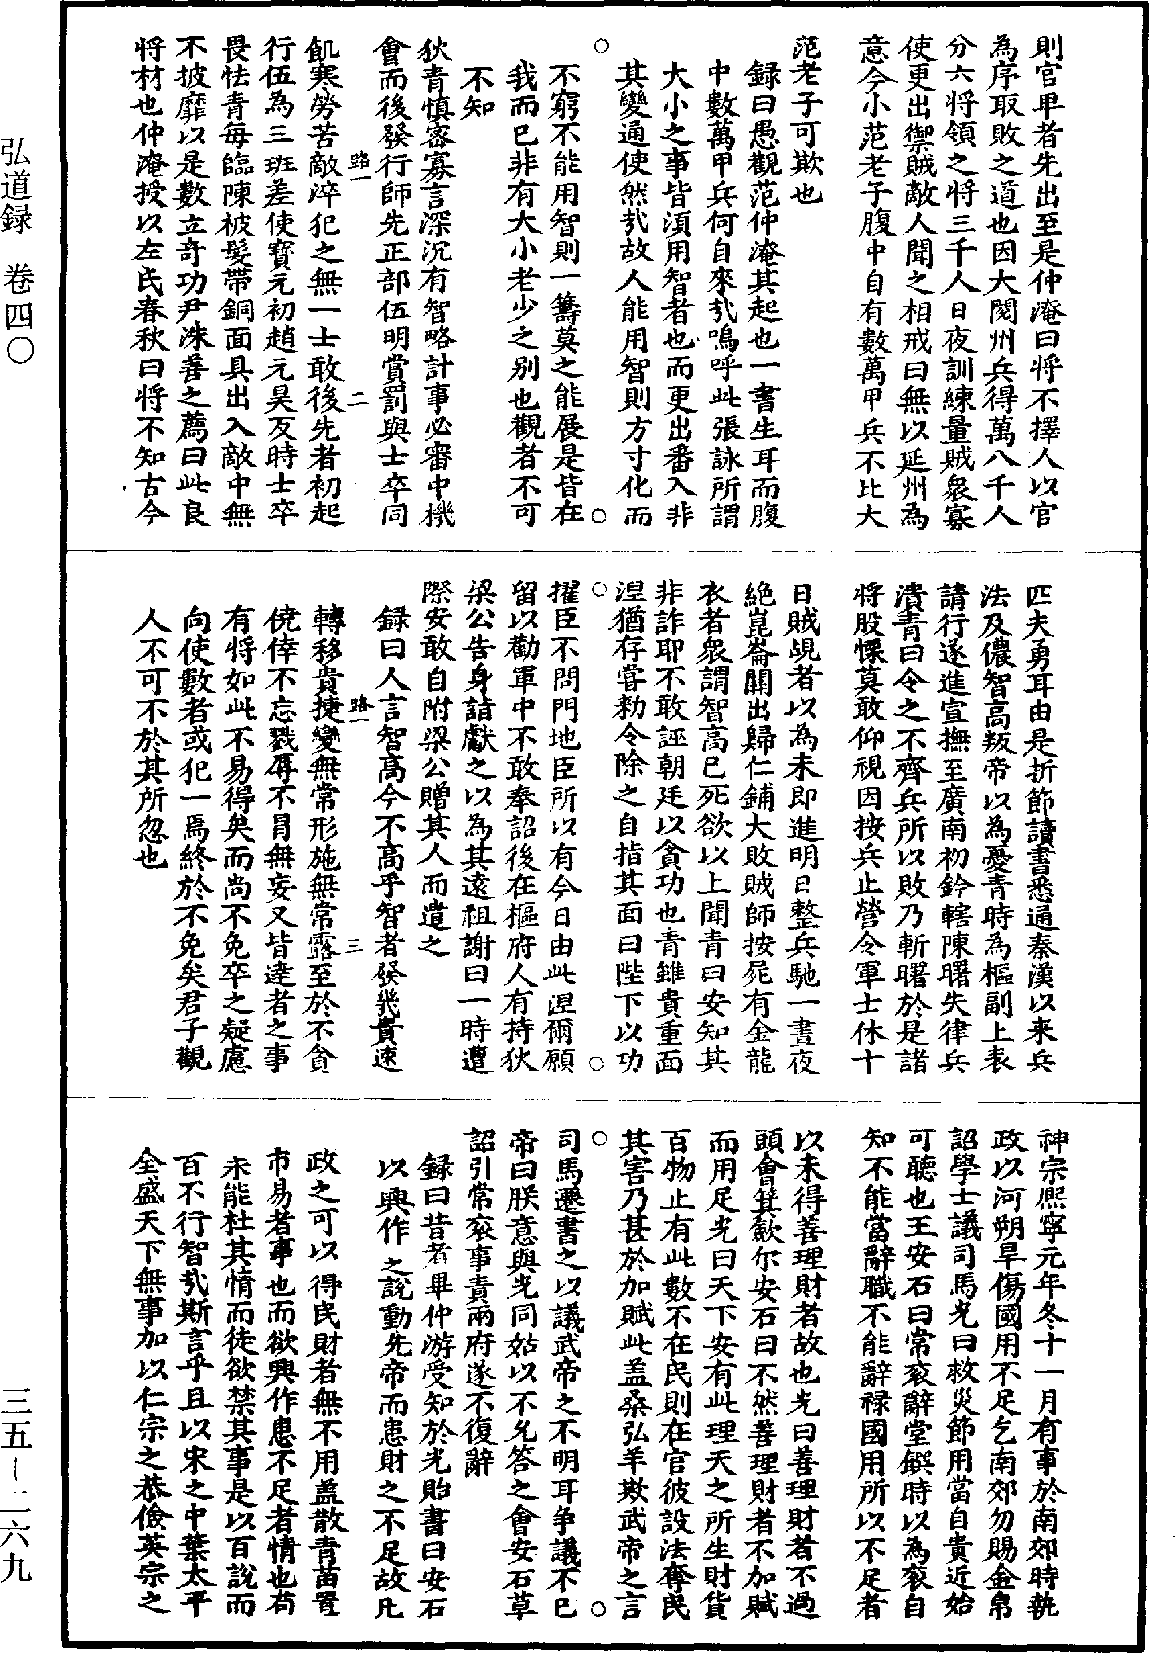 弘道録　卷四〇
則官卑者先出至是仲淹曰將不擇人以官
為序取敗之道也因大閱州兵得萬八千人
分六將領之將三千人日夜訓練量賊衆寡
使更出禦賊敵人聞之相戒曰無以延州為
意今小范老子腹中自有數萬甲兵不比大
范老子可欺也
錄曰愚觀范仲淹其起也一書生耳而腹
中數萬甲兵何自來㢤嗚呼此張詠所謂
大小之事皆湏用智者也而更出番入非
其變通使然㢤故人能用智則方寸化而
○　○
不窮不能用智則一籌莫之能展是皆在
我而已非有大小老少之别也觀者不可
不知
狄青慎密寡言深沉有智略計事必審中機
會而後發行師先正部伍明賞罰與士卒同
路一　二
飢寒勞苦敵淬犯之無一士敢後先者初起
行伍為三班差使寶元初趙元昊反時士卒
畏怯青每臨陳被髮帶銅面具出入敵中無
不披靡以是數立竒功尹洙善之薦曰此良
將材也仲淹授以左氏春秋曰將不知古今
匹夫勇耳由是折節讀書悉通秦漢以来兵
法及儂智高叛帝以為憂青時為樞副上表
請行遂進宣撫至廣南初鈐轄陳曙失律兵
潰青曰令之不齊兵所以敗乃斬曙於是諸
將股慄莫敢仰視因按兵止營令軍士休十
日賊覘者以為未即進明日整兵馳一晝夜
絶崑崙關出歸仁鋪大敗賊師按屍有金龍
衣者衆謂智高已死欲以上聞青曰安知其
非詐耶不敢誣朝廷以貪功也青雖貴重面
涅猶存嘗勑令除之自指其面曰陛下以功
○　○
擢臣不問門地臣所以有今日由此涅爾願
留以勸軍中不敢奉詔後在樞府人有持狄
梁公告身詣獻之以為其遠祖謝曰一時遭
際安敢自附梁公贈其人而遣之
錄曰人言智高今不高乎智者發幾貴速
路一　三
轉移貴捷變無常形施無常露至於不貪
僥倖不忘戮辱不冐無妄又皆達者之事
有將如此不易得矣而尚不免卒之疑慮
向使數者或犯一焉終於不免矣君子觀
人不可不於其所忽也
神宗熙寧元年冬十一月有事於南郊時執
政以河朔旱傷國用不足乞南郊勿賜金帛
詔學士議司馬光曰救災節用當自貴近始
可聽也王安石曰常衮辭堂饌時以為衮自
知不能當辭職不能辭禄國用所以不足者
以未得善理財者故也光曰善理財者不過
頭會箕歛尔安石曰不然善理財者不加賦
而用足光曰天下安有此理天之所生財貨
百物止有此數不在民則在官彼設法奪民
其害乃甚於加賦此盖桑弘羊欺武帝之言
○　○
司馬遷書之以議武帝之不明耳争議不已
帝曰朕意與光同姑以不允答之會安石草
詔引常衮事責兩府遂不復辭
錄曰昔者畢仲游受知於光貽書曰安石
以興作之說動先帝而患財之不足故凡
政之可以得民財者無不用盖散青苗置
市易者事也而欲興作患不足者情也苟
未能杜其情而徒欲禁其事是以百說而
百不行智㢤斯言乎且以宋之中葉太平
全盛天下無事加以仁宗之恭儉英宗之
三五－二六九